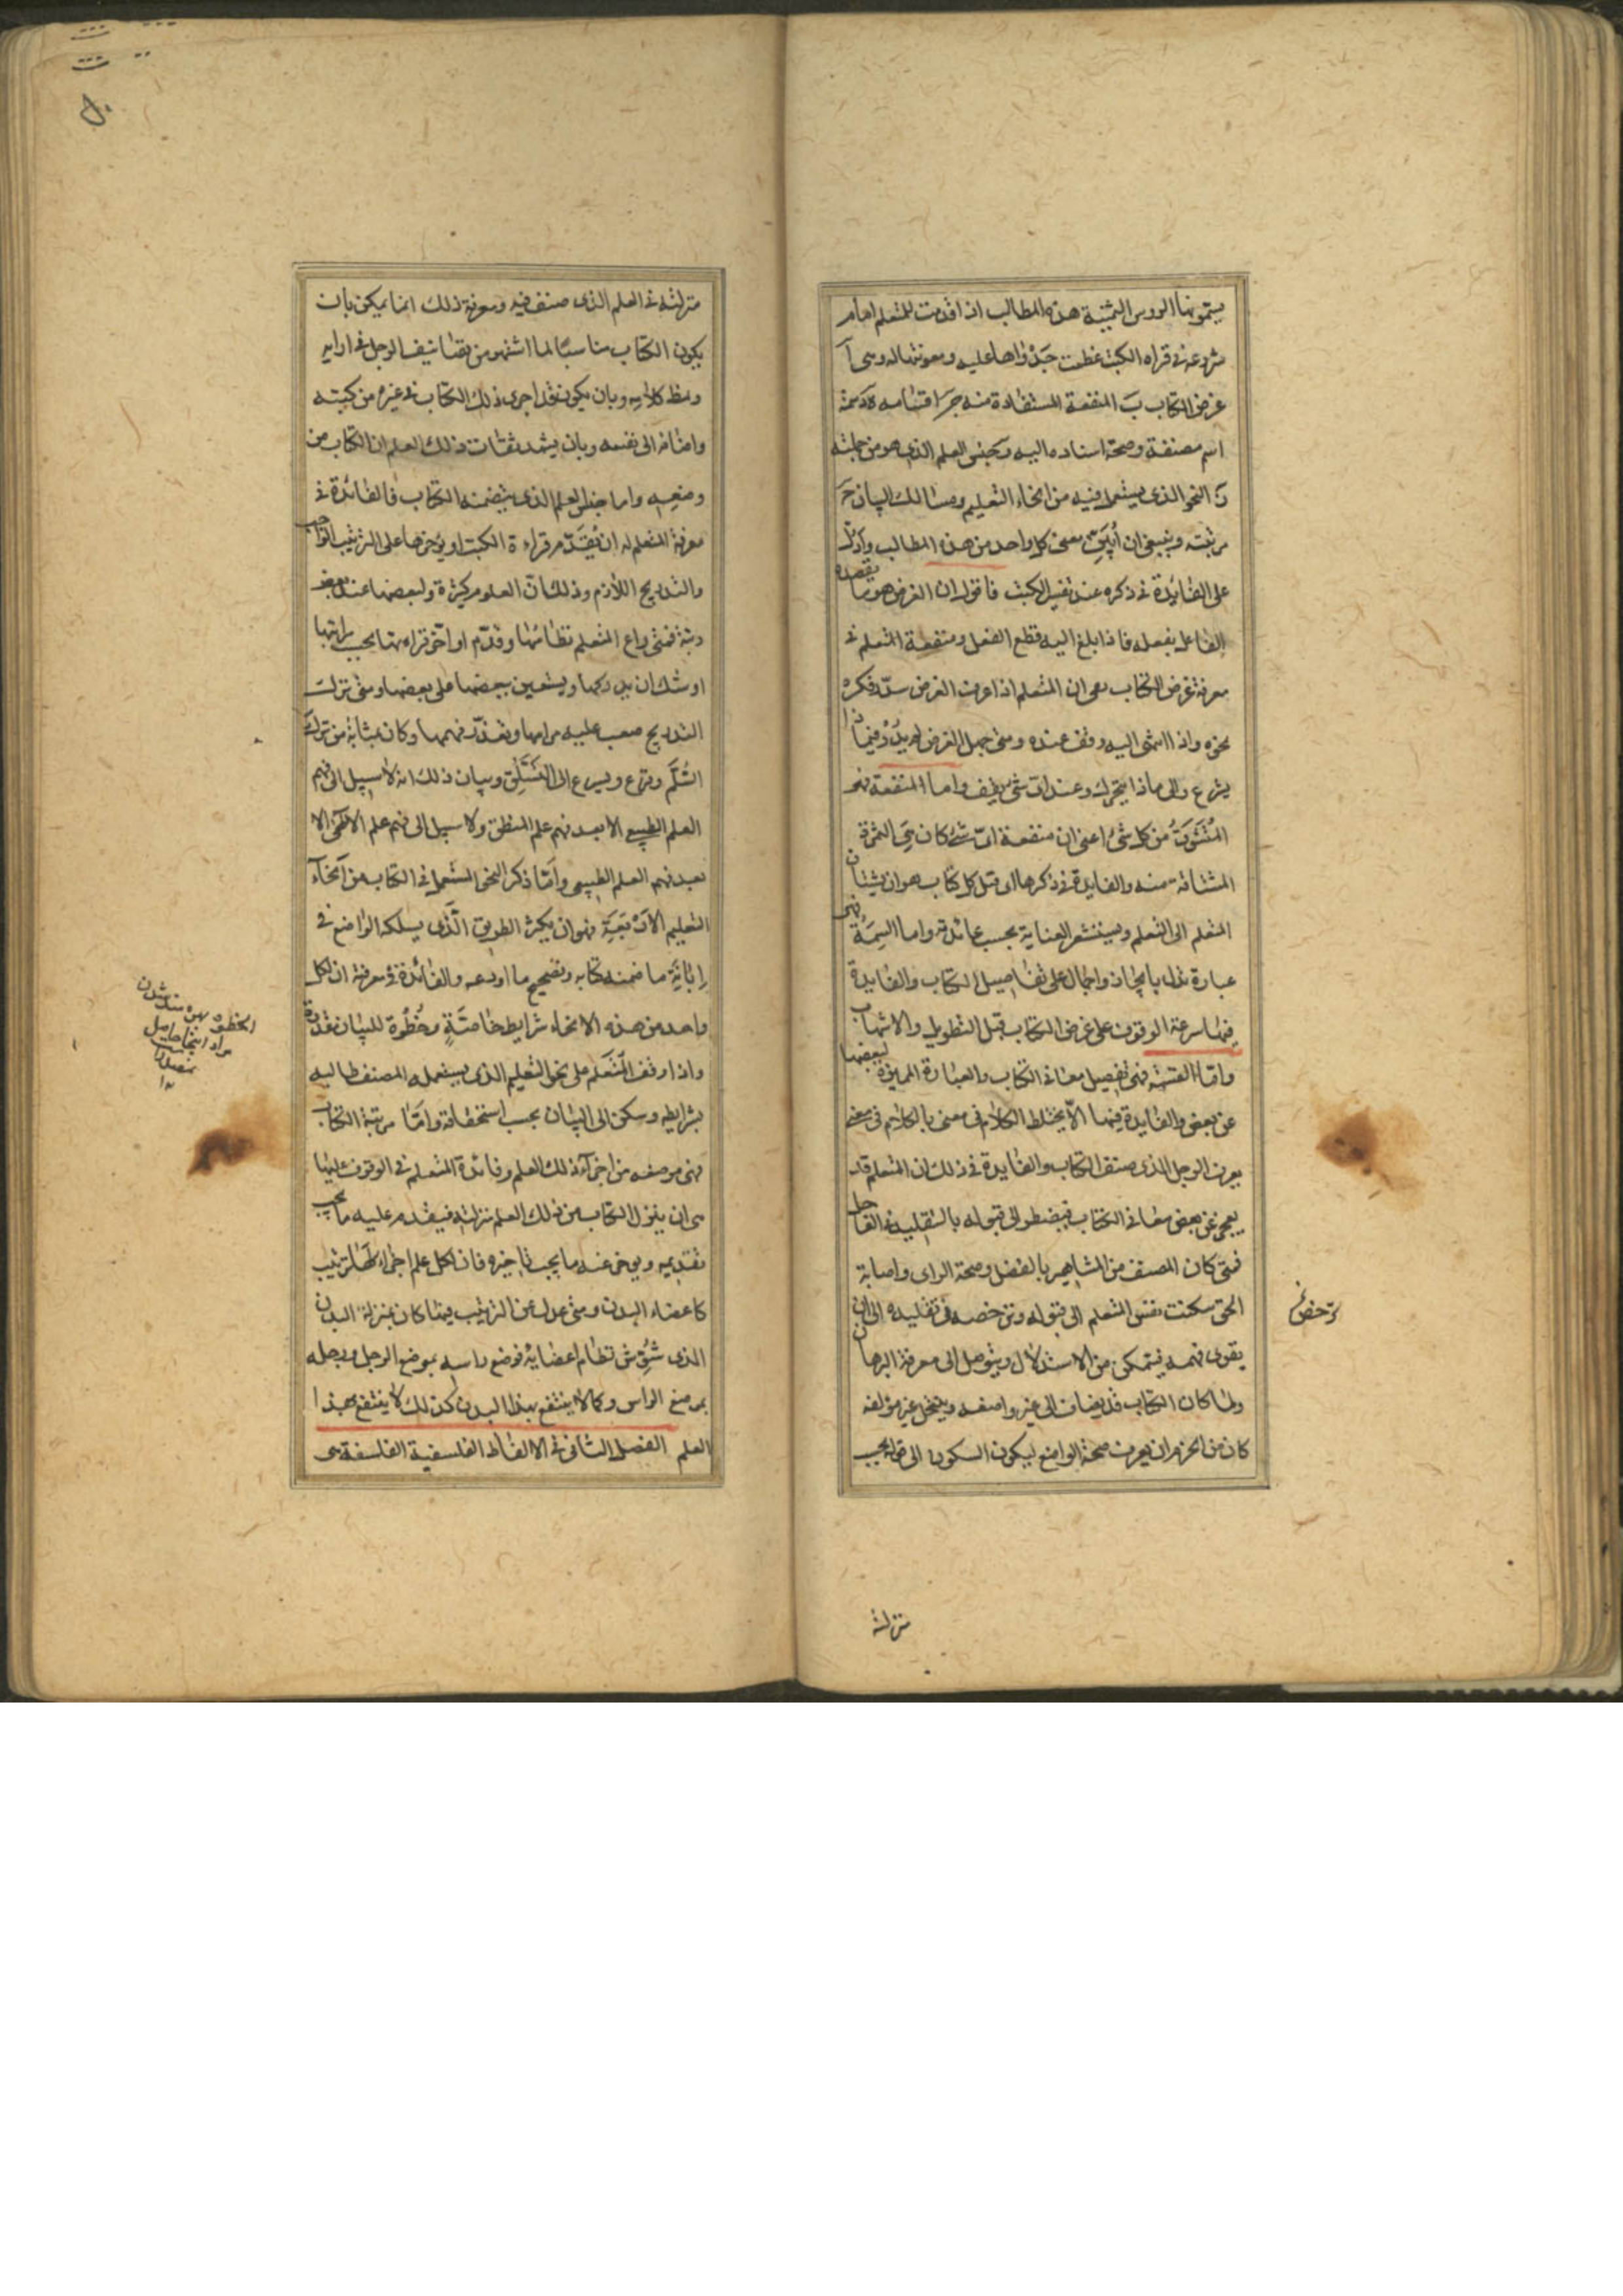 يسمونها الروس الثمنية هذه المطالب اذا قدمت للمتعلم امام
شروعه فى قراه الكتب عظمت جدواها عليه ومعونتها له وهى آ
غرض الكتاب بَ المنفعة المستفادة منه جَ اقسامه دَ سمته
اسم مصنفه وصحة اسناده اليه جنس العلم الذى هو من جملته
زَ النحو الذى يستعمل فيه من انحاء التعليم ومسالك البيان حَ
مرتبته وينبغى ان اُبيّن معنى كل واحد من هذه المطالب وادلّ
على الفايدة فى ذكره عند تفسير الكتب فاقول ان الغرض هو ما يقصده
الفاعل بفعله فاذا بلغ اليه قطع الفعل ومنفعة المتعلم فى
معرفة غرض الكتاب هى ان المتعلم اذا عرف الغرض سدّد فكره
نحوه واذا انتهى اليه وقف عنده ومتى جهل الغرض لم يدر فيماذا
يشرع والى ماذا يتحرك وعند اى شى يقف واما المنفعة فهى
المُتَشَوَّق من كل شىء اعنى ان منفعة اىّ شىء كان هى الثمرة
المشتاقة منه والفايدة فى ذكرها اى قبل كل كتاب هو ان يشتاق
المتعلم الى التعلم ويستشعر العناية بحسب عائدته واما السِمَة فهى
عبارة تدل بايجاز واجمال على تفاصيل الكتاب والفايدة
فيها سرعة الوقوف على غرض الكتاب قبل التطويل والاسهاب
واما القسمة فهى تفصيل معانى الكتاب والعبارة المميزة لبعضها
عن بعض والفايدة فيها الّا يختلط الكلام فى معنى بالكلام فى معنى
يعرف الرجل الذى صنف الكتاب والفايدة فى ذلك ان المتعلم قد
يعجز عن بعض معانى الكتاب فيضطر الى قبوله بالتقليد فى العاجل
فمتى كان المصنف من المشاهير بالفضل وصحة الراى واصابة
الحق سكنت نفس المتعلم الى قبوله وترخصه فى تقليده الى ان
يقوى فهمه فيتمكن من الاستدلال ويتوصل الى معرفة البرهان
ولما كان الكتاب قد يضاف الى غير واضعه وينحل غير مؤلفه
كان من الحزم ان يعرف صحة الواضع ليكون السكون الى ما يجب
ترخص
منزلته
منزلته فى العلم الذى صنف فيه ومعرفة ذلك انما يمكن بان
يكون الكتاب مناسبًا لما اشتهر من تصانيف الرجل فى ارايه
ونظم كلامه وبان يكون قد اجرى ذلك الكتاب فى غيره من كتبه
واضافه الى نفسه وبان يشهد ثقات ذلك العلم ان الكتاب من
وضعه واما جنس العلم الذى يتضمنه الكتاب فالفائدة فى
معرفة المتعلم له ان يُقدّم قراءة الكتب او يؤخرها على الترتيب الواجب
والتدريج اللازم وذلك انّ العلوم كثيرة ولبعضها عند بعض
رتبة فمتى راع المتعلم نظائمها وقدّم او اخّر قراءتها بحسب مراتبها
اوشك ان يدركها ويستعين ببعضها على بعضها ومتى ترك
التدريج صعب عليه مرامها وتعذّر فهمها وكان بمثابة من ترك
السُلَّم وتسرع الى التَسَلُّق وبيان ذلك انه لا سبيل الى فهم
العلم الطبيعى الا بعد فهم علم المنطق ولا سبيل الى فهم علم الالهى الا
بعد فهم العلم الطبيعى وامّا ذكر النحو المستعمل فى الكتاب من انحآء
التعليم الاربعة فهو ان يكثر الطريق الّذى يسلكه الواضع فى
اِبانة ما ضمنه كتابه وتصحيح ما اودعه والفائدة فى معرفته ان لكل
واحد من هذه الانحاء شرايط خاصَّةٍ وخُطُوة للبيان
واذا وقف المتعلم على نحو التعليم الذى يستعمله المصنف طالبه
بشرايطه وسكن الى البيان بحسب استحقاقه وامّا مرتبة الكتاب
فهى موضعه من اجزآء ذلك العلم وفائدة المتعلم فى الوقوف عليها
هى ان ينزل الكتاب من ذلك العلم منزلته فيقدم عليه ما يجب
تقديمه ويؤخر عنه ما يجب تاخيره فان لكل علم اجزاء لها ترتيب
كاعضاء البدن ومتى عدل عن الترتيب فيها كان بمنزلة البدن
الذى شُوّش نظام اعضايه فوضع راسه بموضع الرجل ورجله
بموضع الراس وكما لا ينتفع بهذا البدن كذلك لا ينتفع بهذا
العلم الفصل الثانى فى الالفاظ الفلسفية الفلسفة هى
الخطوه بهره مند شدن
مراد اينجا حاصل